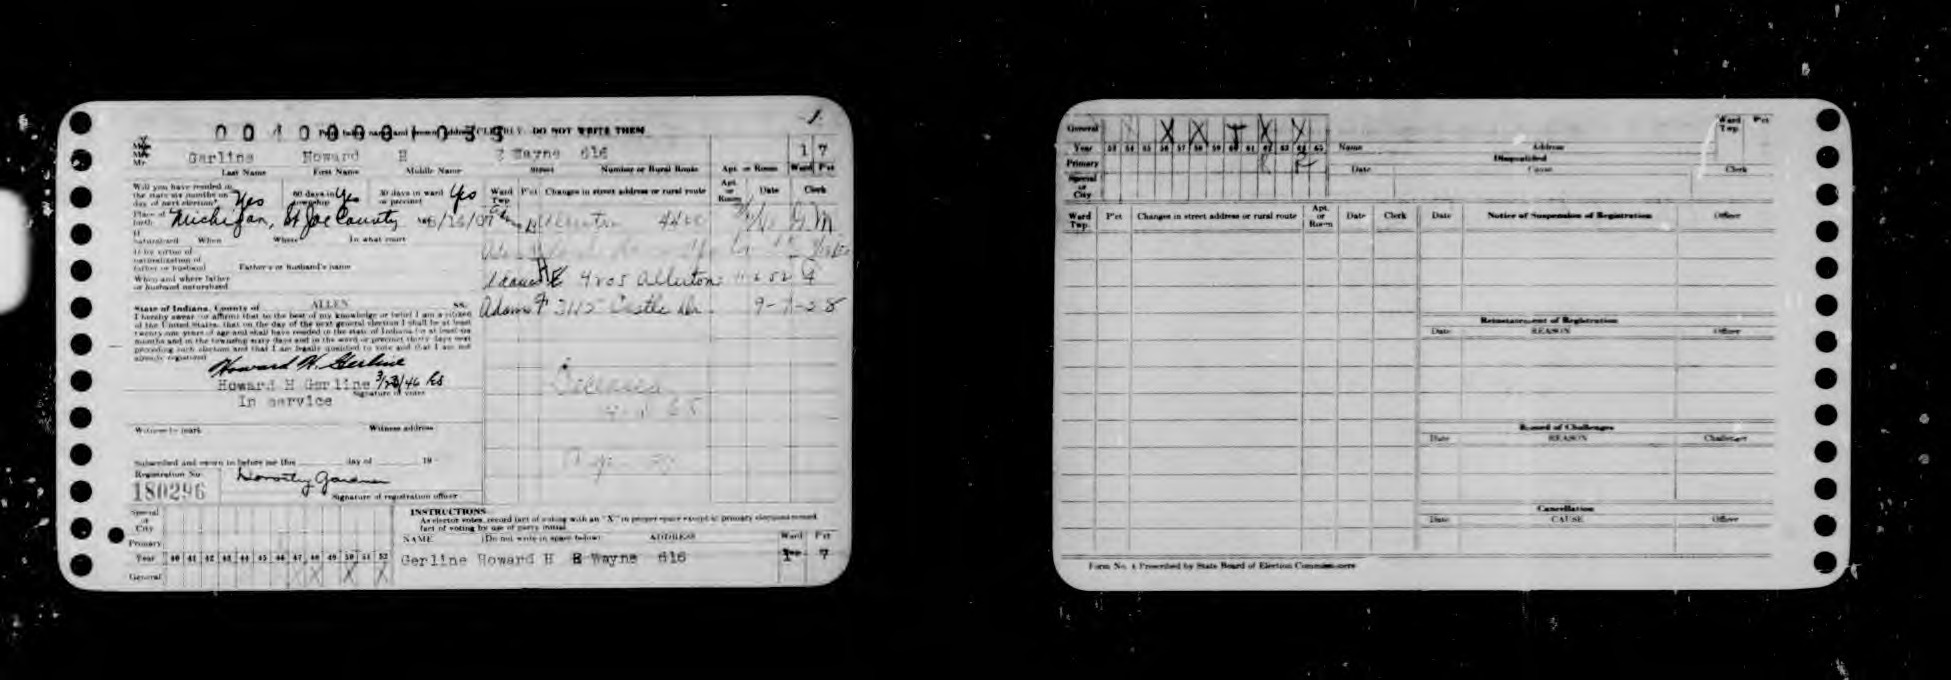 Print below name and present address CLEARLY. DO NOT WRITE THEM
Gerline Howard H E Wayne 616 1 7
Last Name First Name Middle Name Street Number or Rural Route Apt. or Room Ward Pct
Will you have resided in
the state six months on
day of next election? Yes 60 days in township Yes 30 days in ward or precinct Yes
Ward Twp. P'ct Changes in street address or rural route Apt. or Room Date Clerk
Place of birth Michigan, St Joe County
4400 G M
If naturalized When Where In what court
If by virtue of
naturalization of
father or husband Father's or husband's name
When and where father
or husband naturalized
Adams 4205 Allerton 52 G
State of Indiana, County of ALLEN ss.
Adams 3115 Castle Dr. 9-
I hereby swear or affirm that to the best of my knowledge or belief I am a citizen
of the United States, that on the day of the next general election I shall be at least
twenty-one years of age and shall have resided in the state of Indiana for at least six
months and in the township sixty days and in the ward or precinct thirty days next
preceding such election and that I am legally qualified to vote and that I am not
already registered
Howard H. Gerline
Howard H Gerline 3/23/46
Signature of voter
In service
Deceased
65
Witness to mark Witness address
Subscribed and sworn to before me this day of 19
Registration No.
180296 Dorothy Gardner
Signature of registration officer
Special or City
INSTRUCTIONS
As elector votes, record fact of voting with an "X" in proper space except in primary elections record
fact of voting by use of party initial
Primary
NAME (Do not write in space below) ADDRESS Ward P'ct
Year 40 41 42 43 44 45 46 47 48 49 50 51 52
Gerline Howard H E Wayne 616 1 7
General X X X X
General X X X X X
Year 53 54 55 56 57 58 59 60 61 62 63 64 65
Primary R R
Special or City
Name Address
Disqualified
Date Cause Clerk
Ward Twp. P'ct
Ward Twp. P'ct Changes in street address or rural route Apt. or Room Date Clerk
Date Notice of Suspension of Registration Officer
Reinstatement of Registration
Date REASON Officer
Record of Challenges
Date REASON Challenger
Cancellation
Date CAUSE Officer
Form No. 4 Prescribed by State Board of Election Commissioners